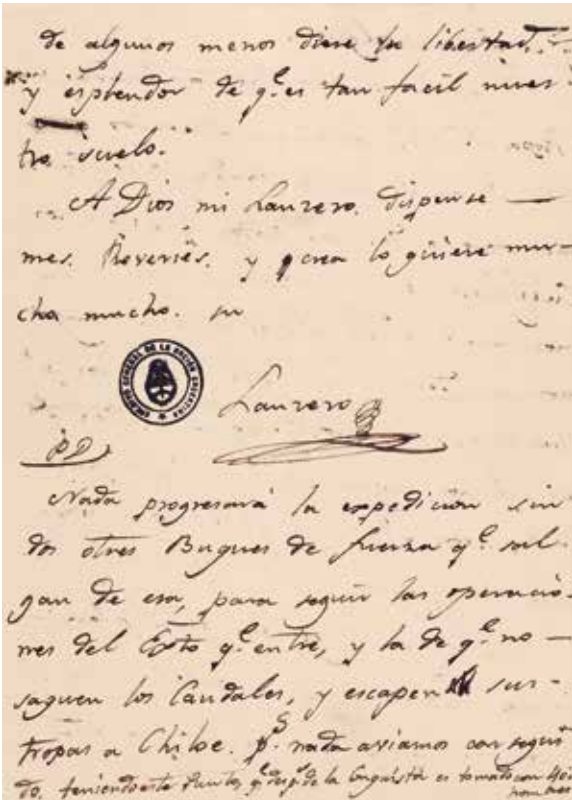 de algunos menos diese su libertad,
y esplendor de q.e es tan facil nues-
tro suelo.
A Dios mi Lauzero. dispense
mes. Reveriès. y crea lo quiere mu-
cha mucho. su
ARCHIVO GENERAL DE LA NACIÓN ARGENTINA
Lauzero
PD
Nada progresará la expedicion sin
dos otres Buques de fuerza q.e sal
gan de esa, para seguir las operacio-
nes del Exto q.e entre, y la de q.e no
saquen los Caudales, y escapen sus
tropas a Chiloe. p.s nada aviamos consegui
do. teniendo este Punto, q.e desp.s de la Conquista es tomado con 400
hombres